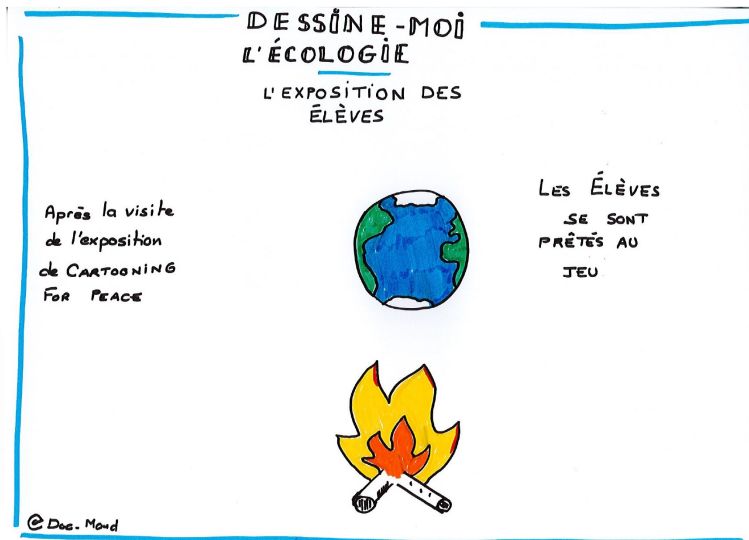 DESSINE-MOI
L'ÉCOLOGIE
L'EXPOSITION DES
ÉLÈVES
Après la visite
de l'exposition
de CARTOONING
FOR PEACE
LES ÉLÈVES
SE SONT
PRÊTÉS AU
JEU
@Doc-Maud